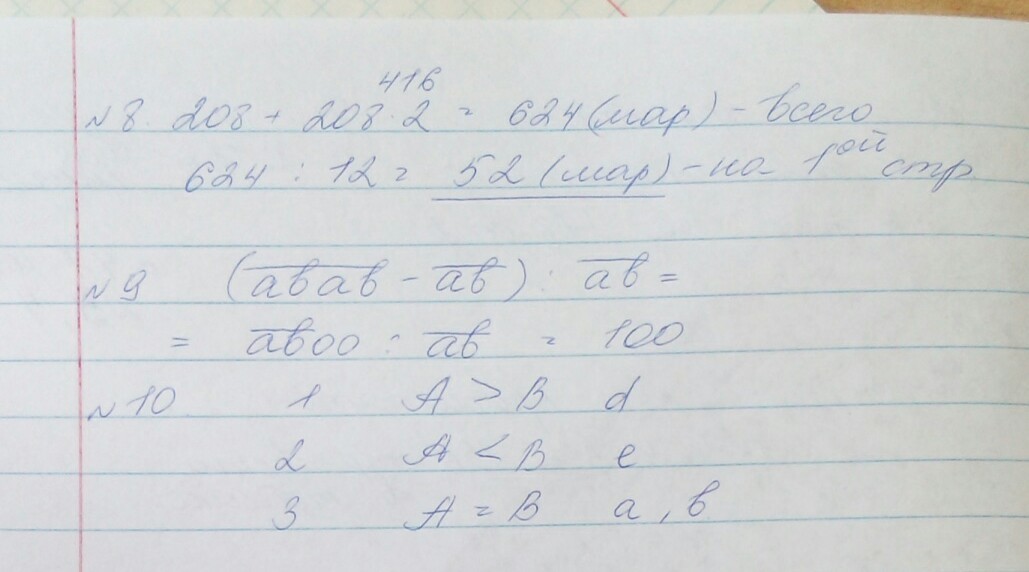 416
№8. 208 + 208 · 2 = 624 (мар) - всего
624 : 12 = 52 (мар) - на 1ой стр
№9 (abab - ab) : ab =
= ab00 : ab = 100
№10 1 A > B d
2 A < B e
3 A = B a, b